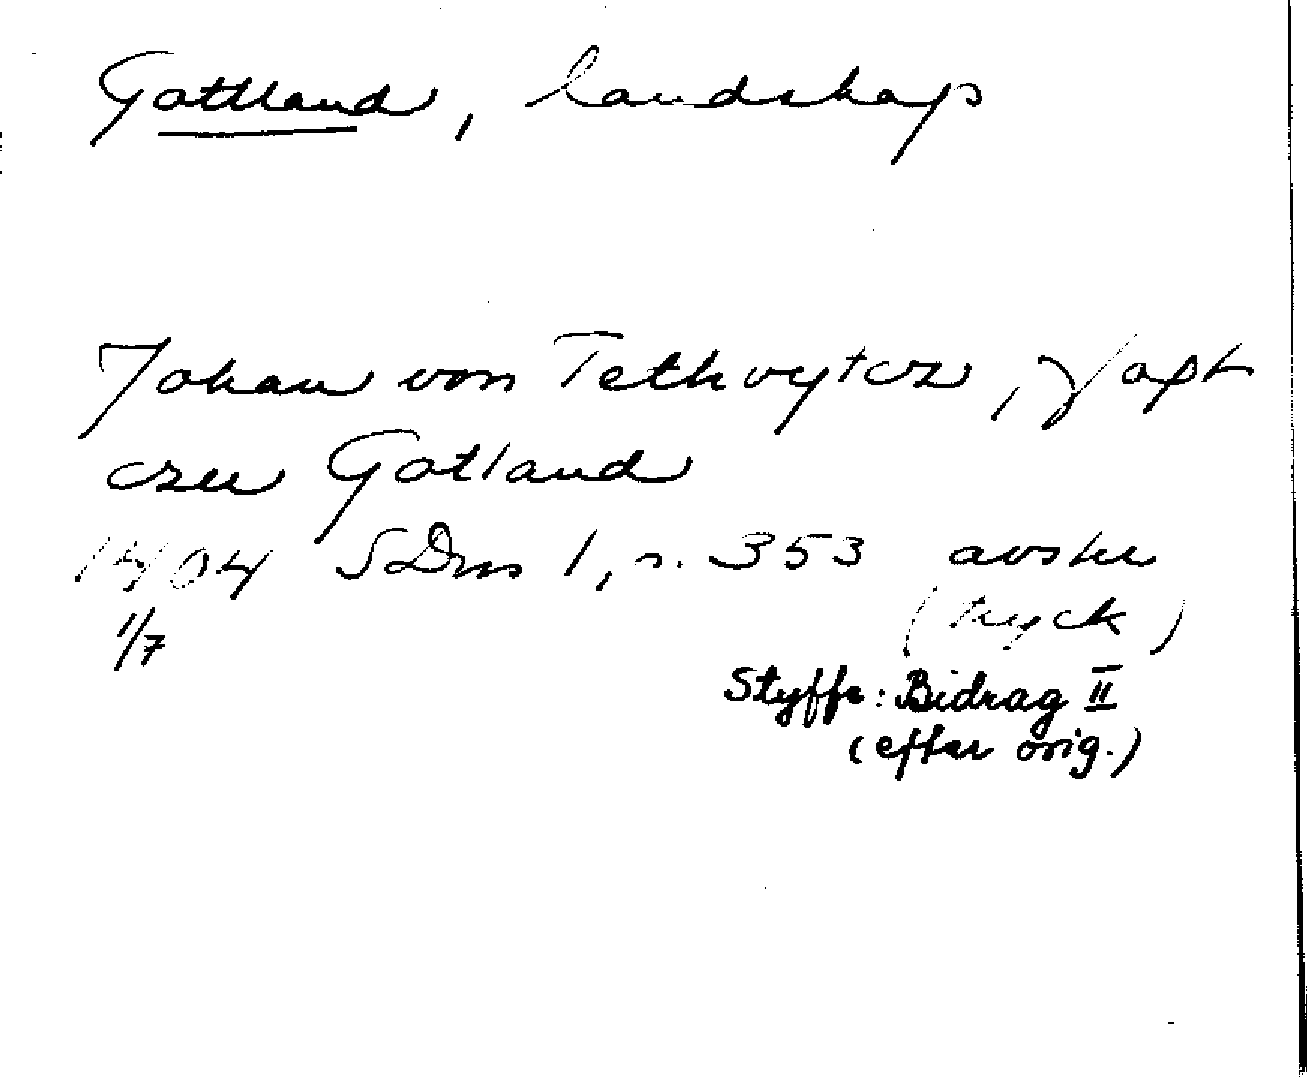 Gottland, landskap
Johan von Tethvytcz, voyt
czu Gotland
1404 SDns 1, n. 353 avskr
1/7 (tryck)
Styffe: Bidrag II
(efter orig.)